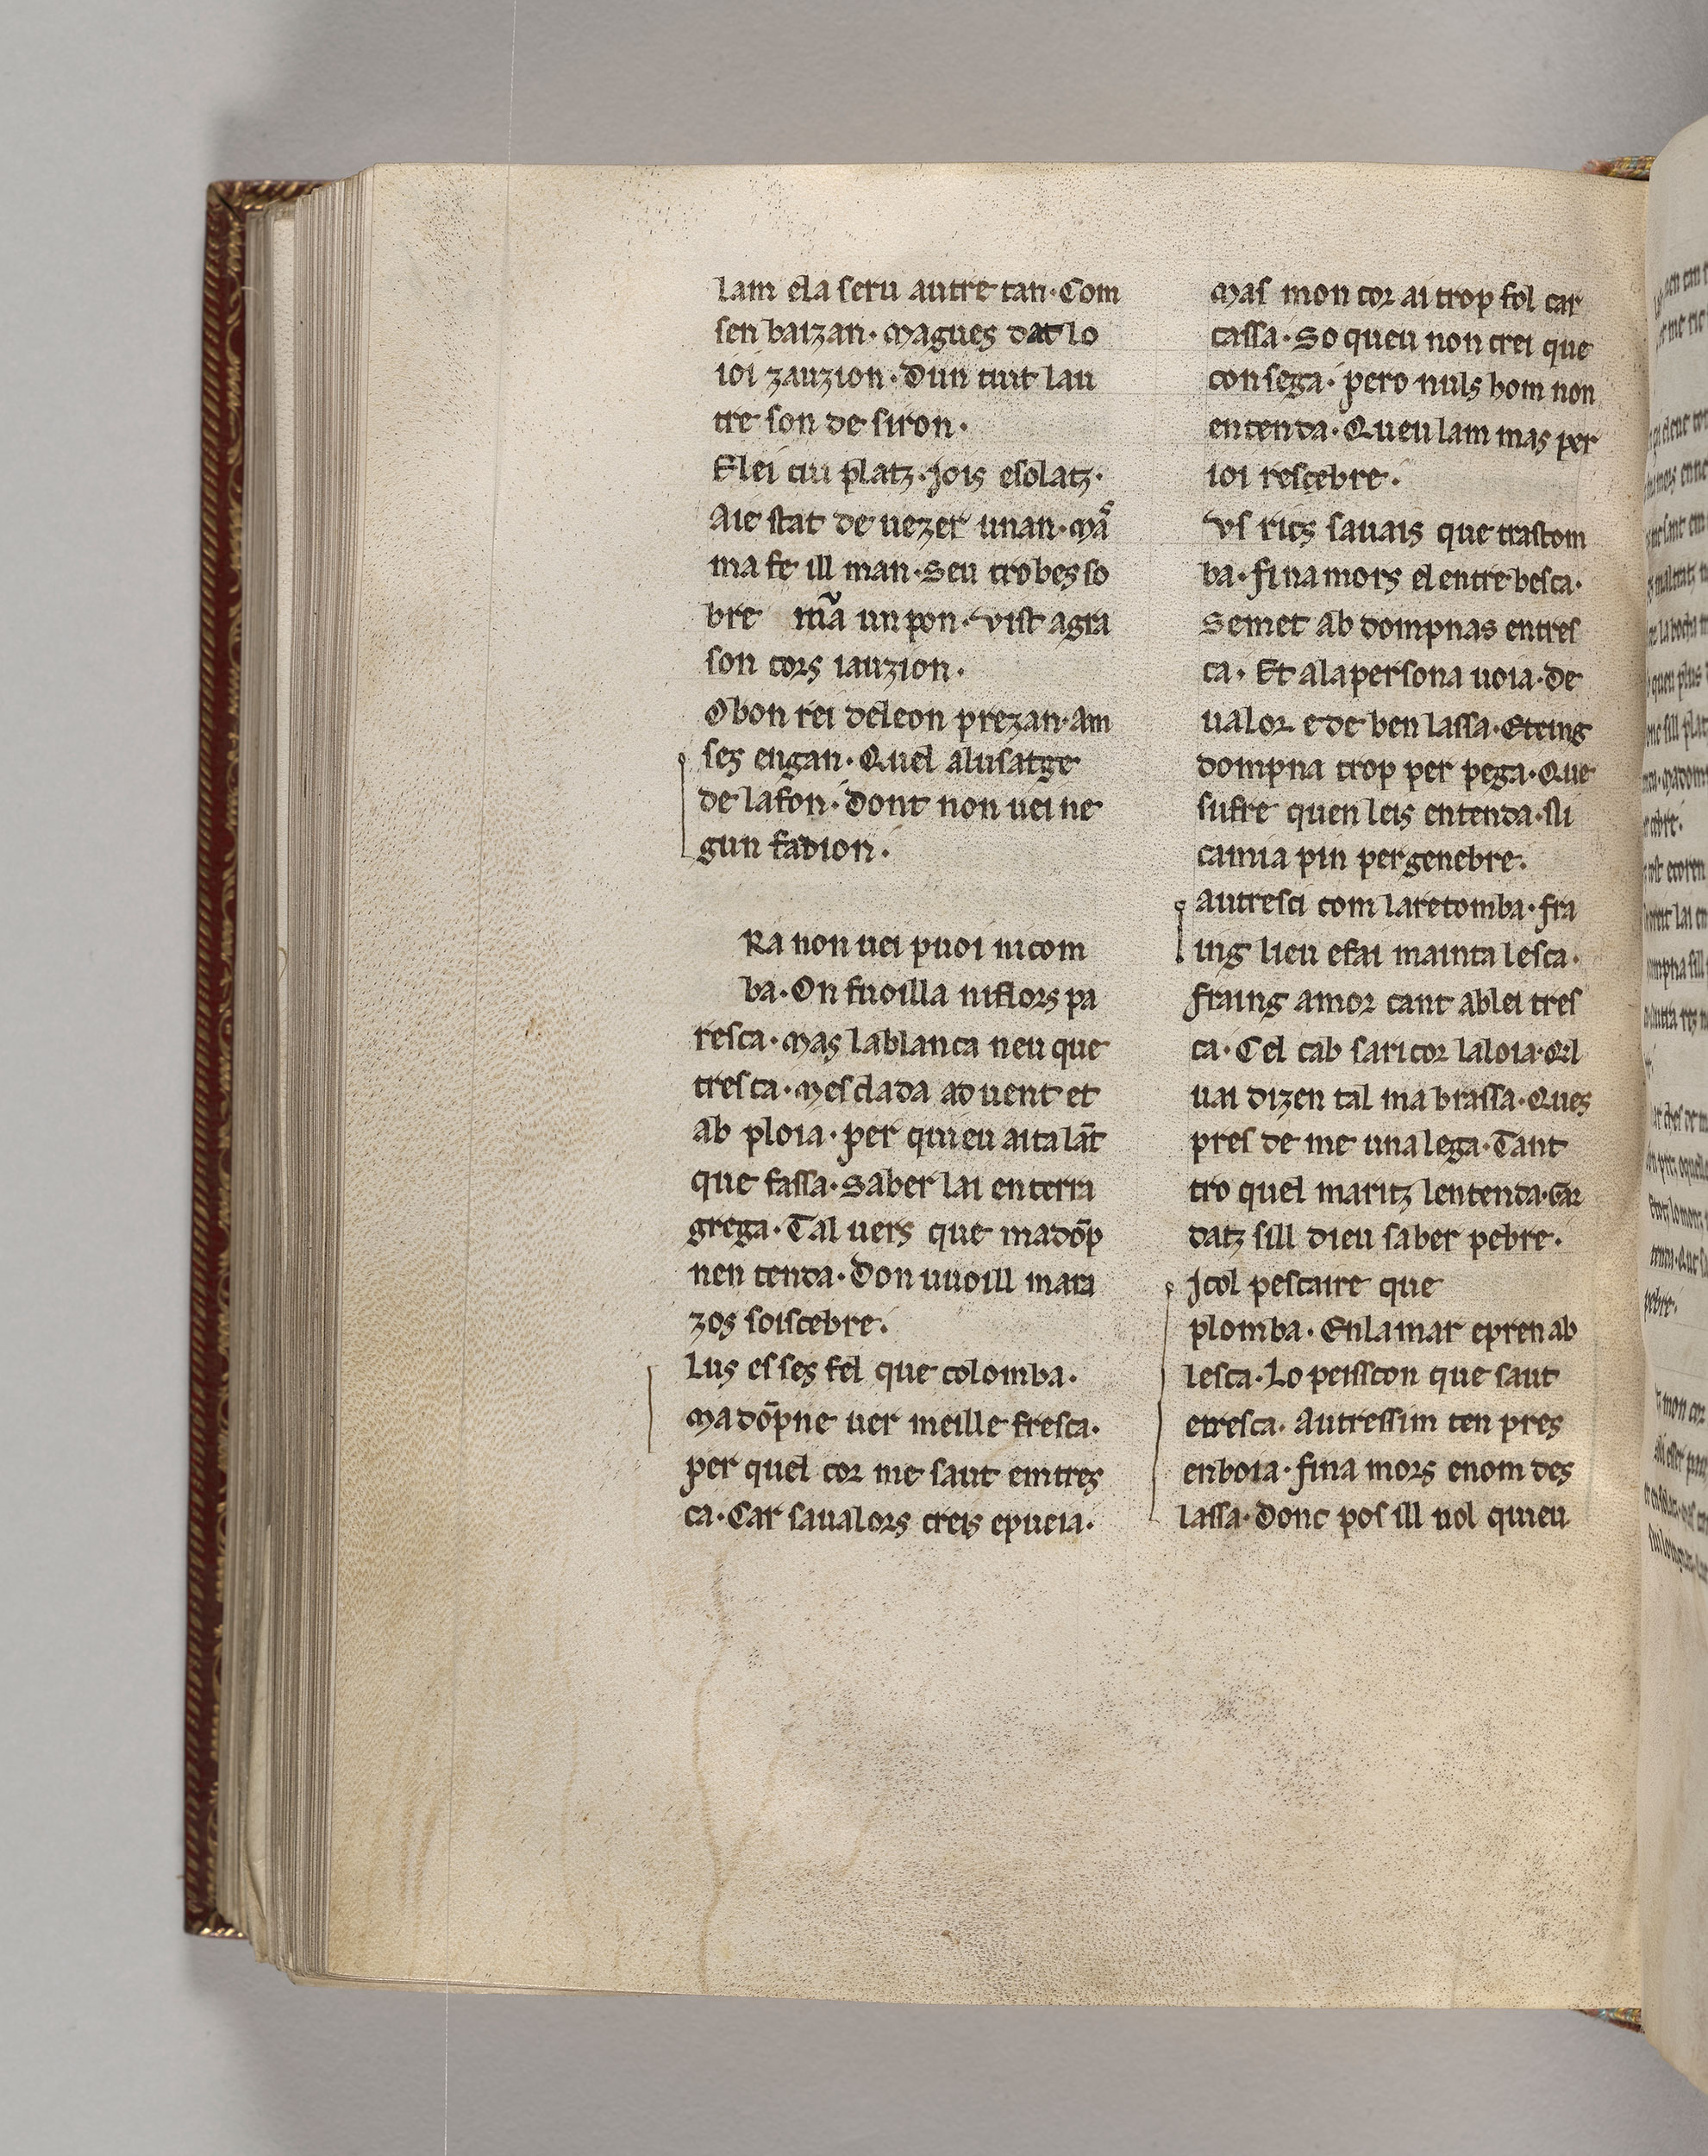 lam ela seru autre tan · Com
sen baizan · Magues dat lo
ioi zauzion · Dun cuit lau
tre son de siron ·
Elei cui platz · Jois esolatz ·
Aie stat de uezer unan · Mas
ma fe ill man · Seu trobes so
bre ma un pon · Vist agra
son cors iauzion ·
O bon rei deleon prezan · Am
ses engan · Quel alusatge
de lafon · Dont non uei ne
gun fadion ·
Ra non uei puoi ni com
ba · On fuoilla ni flors pa
resca · Mas lablanca neu que
tres ca · Mesclada ab uent et
ab ploia · per quieu aita lāt
que fassa · Saber lai en terra
grega · Tal uers que madōp
nen tenda · Don uuoill mara
zos soiscebre ·
Lus es ses fel que colomba ·
Madōpne uer meille fresca ·
per quel cor me saut emtres
ca · Car saualors creis epueia ·
Mas mon cor ai trop fol car
cassa · So queu non crei que
consega · pero nuls hom non
entenda · Queu lam mas per
ioi rescebre ·
Vs rics sauais que trastom
ba · finamors el entrebesca ·
Semet ab dompnas entres
ca · Et alapersona uoia · De
ualor ede ben lassa · Eteing
dompna trop per pega · Que
sufre quen leis entenda · sli
camia pin per genebre ·
Autresci com laretomba · fra
ing lieu efai mainta lesca ·
fraing amor cant ablei tres
ca · Cel cab sari cor laloia · Qil
uai dizen tal ma brassa · Ques
pres de me una lega · Tant
tro quel maritz lentenda · Gar
datz sill dieu saber pebre ·
Jcol pescaire que
plomba · Enlamar epren ab
lesca · Lo peisscon que saut
etresca · Autressim ten pres
enboia · fina mors enom des
lassa · Donc pos ill uol quieu